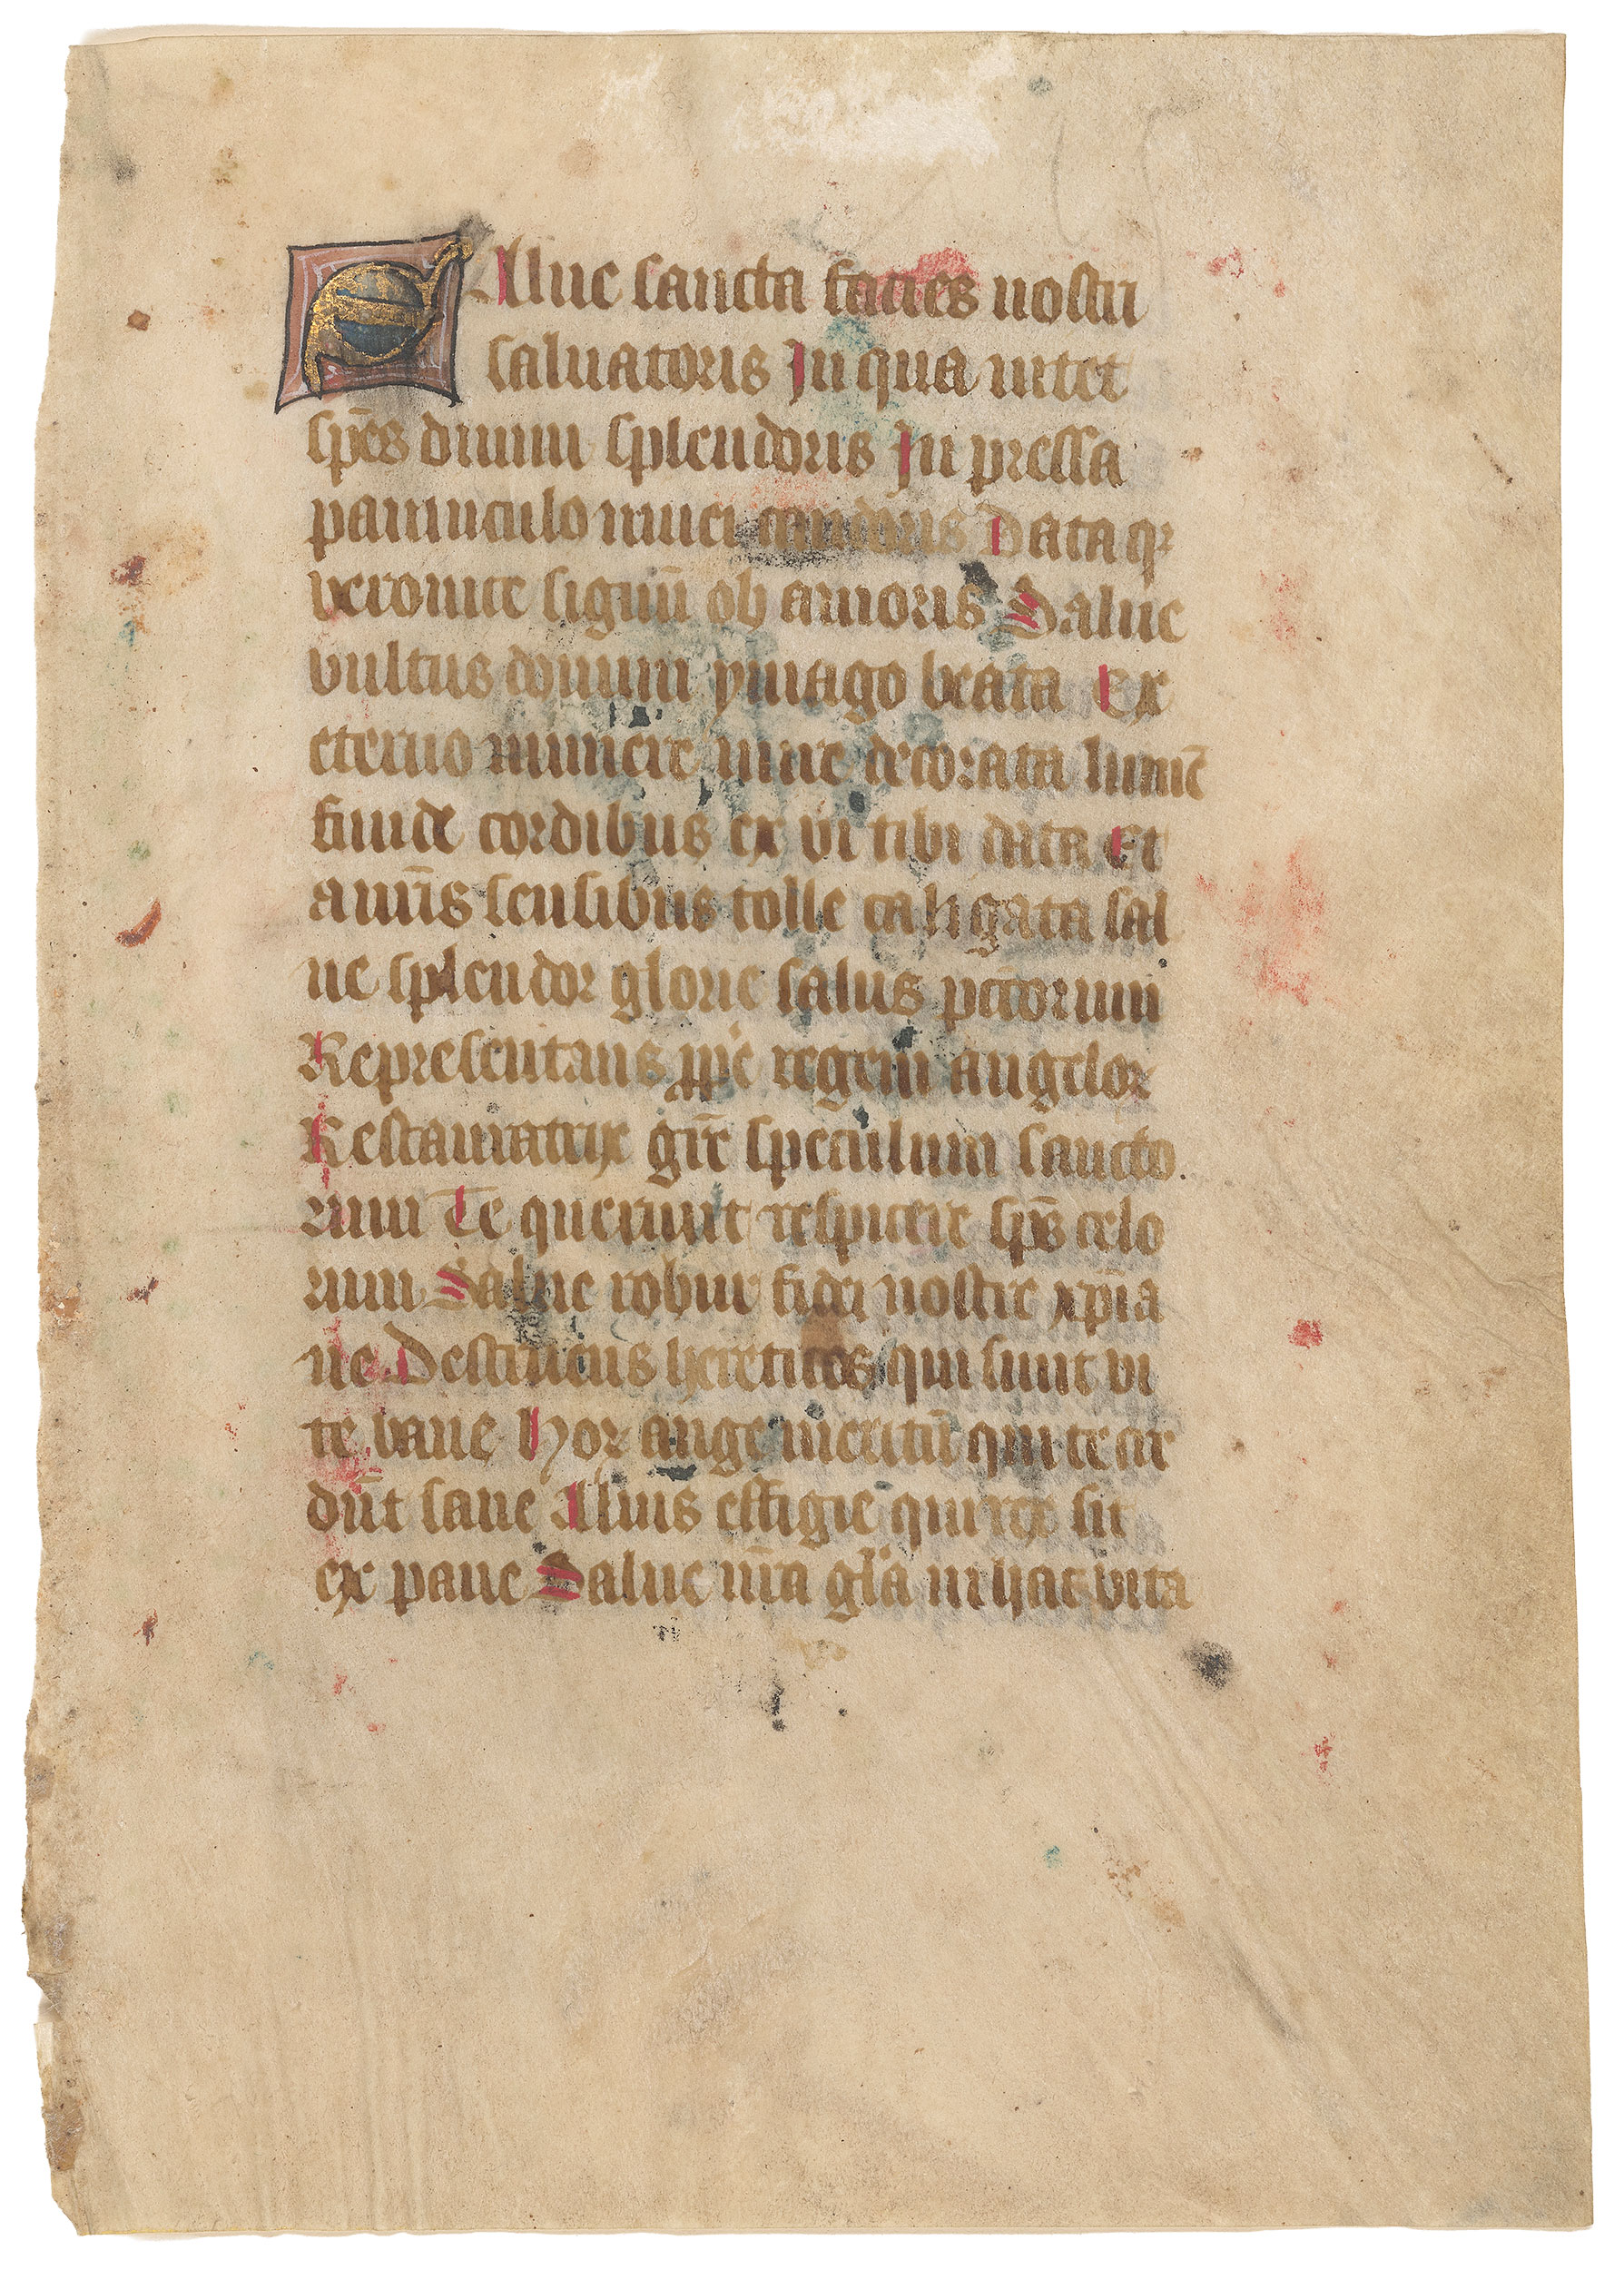 SAlue sancta facies nostri
saluatoris In qua nitet
sp̄es diuini splendoris In pressa
panniculo niuei candoris Data qꝫ
veronice signū ob amoris Salue
vultus domini ymago beata Ex
eterno munere mire decorata lumē
funde cordibus ex vi tibi data Et
a nr̄is sensibus tolle caligata sal
ue splendor glorie salus pctorum
Representans regem angeloꝝ
Restauratrix gr̄e speculum sancto
rum Te querunt respicere sp̄s celo
rum Salue robur fidei nostre xp̄ia
ne Destruens hereticos qui sunt vi
te vane Hoꝝ auge meritū qui te cre
dūt sane Illius effigie qui rex fit
ex pane Salue nr̄a gl̄a in hac vita